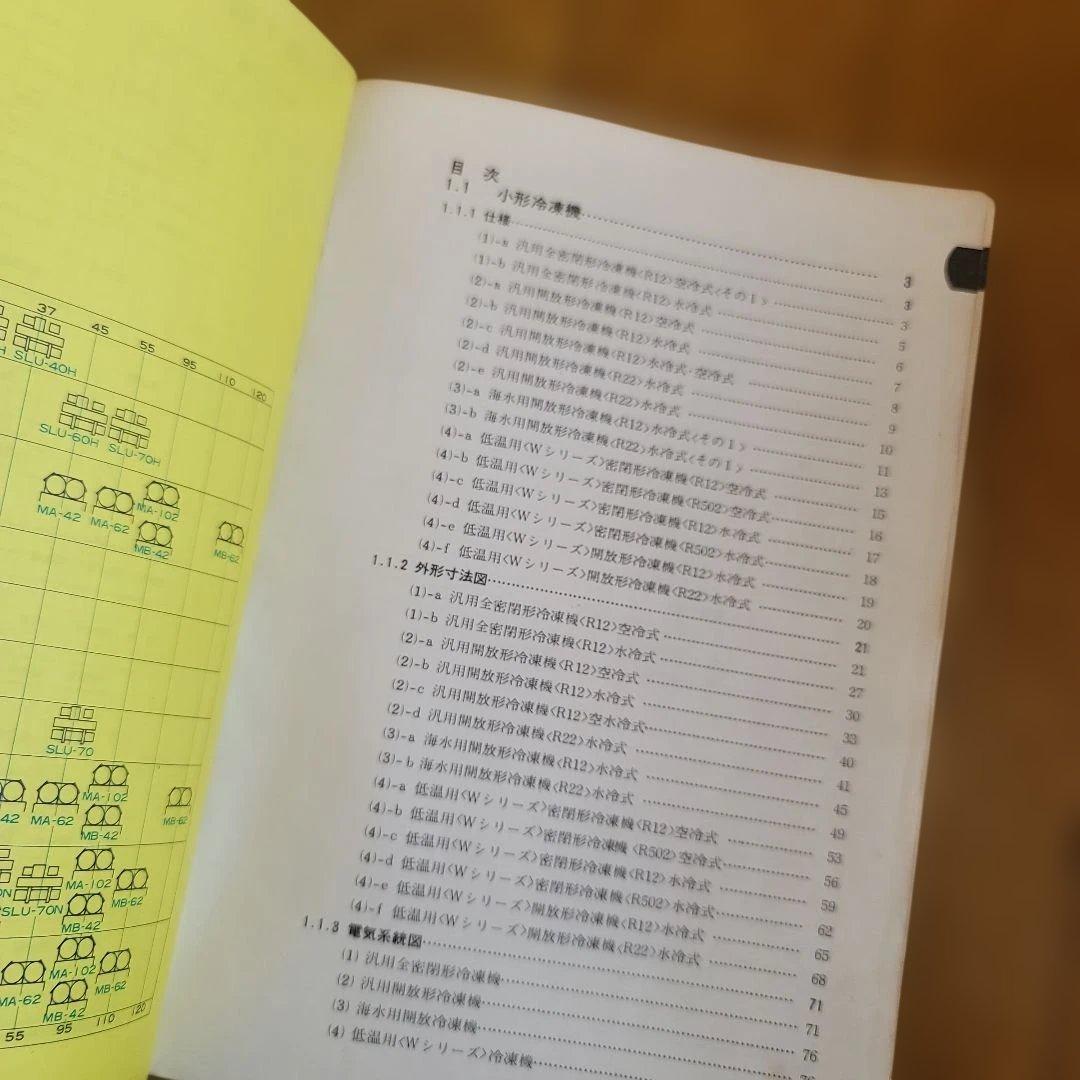 37 45 55 95 110 120
SLU-40H
SLU-60H SLU-70H
MA-42 MA-62 MA-102 MB-42 MB-62
SLU-70
MA-62 MA-102 MB-42 MB-62
SLU-70N MA-102 MB-42 MB-62
MA-62 MA-102 MB-42 MB-62
55 95 110 120
目 次
1.1 小形冷凍機 3
1.1.1 仕様 3
(1)-a 汎用全密閉形冷凍機<R12>空冷式<その1> 3
(1)-b 汎用全密閉形冷凍機<R12>水冷式 5
(2)-a 汎用開放形冷凍機<R12>空冷式 6
(2)-b 汎用開放形冷凍機<R12>水冷式 7
(2)-c 汎用開放形冷凍機<R12>水冷式・空冷式 8
(2)-d 汎用開放形冷凍機<R22>水冷式 9
(2)-e 汎用開放形冷凍機<R22>水冷式 10
(3)-a 海水用開放形冷凍機<R12>水冷式<その1> 11
(3)-b 海水用開放形冷凍機<R22>水冷式<その1> 13
(4)-a 低温用<Wシリーズ>密閉形冷凍機<R12>空冷式 15
(4)-b 低温用<Wシリーズ>密閉形冷凍機<R502>空冷式 16
(4)-c 低温用<Wシリーズ>密閉形冷凍機<R12>水冷式 17
(4)-d 低温用<Wシリーズ>密閉形冷凍機<R502>水冷式 18
(4)-e 低温用<Wシリーズ>開放形冷凍機<R12>水冷式 19
(4)-f 低温用<Wシリーズ>開放形冷凍機<R22>水冷式 20
1.1.2 外形寸法図 21
(1)-a 汎用全密閉形冷凍機<R12>空冷式 21
(1)-b 汎用全密閉形冷凍機<R12>水冷式 27
(2)-a 汎用開放形冷凍機<R12>空冷式 30
(2)-b 汎用開放形冷凍機<R12>水冷式 33
(2)-c 汎用開放形冷凍機<R12>空水冷式 40
(2)-d 汎用開放形冷凍機<R22>水冷式 41
(3)-a 海水用開放形冷凍機<R12>水冷式 45
(3)-b 海水用開放形冷凍機<R22>水冷式 49
(4)-a 低温用<Wシリーズ>密閉形冷凍機<R12>空冷式 53
(4)-b 低温用<Wシリーズ>密閉形冷凍機<R502>空冷式 56
(4)-c 低温用<Wシリーズ>密閉形冷凍機<R12>水冷式 59
(4)-d 低温用<Wシリーズ>密閉形冷凍機<R502>水冷式 62
(4)-e 低温用<Wシリーズ>開放形冷凍機<R12>水冷式 65
(4)-f 低温用<Wシリーズ>開放形冷凍機<R22>水冷式 68
1.1.3 電気系統図 71
(1) 汎用全密閉形冷凍機 71
(2) 汎用開放形冷凍機 76
(3) 海水用開放冷凍機
(4) 低温用<Wシリーズ>冷凍機